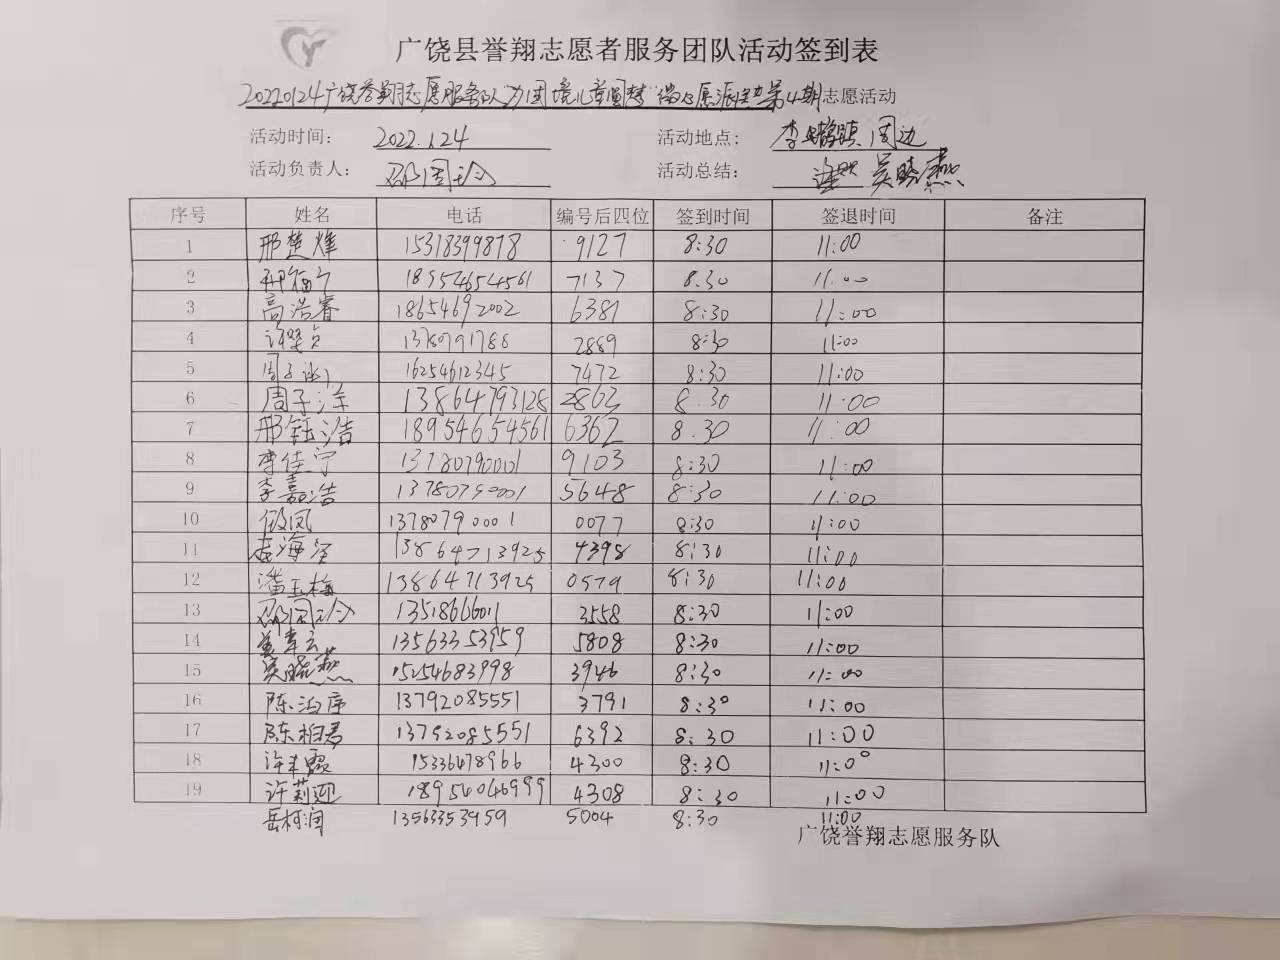 广饶县誉翔志愿者服务团队活动签到表
20220124广饶誉翔志愿服务队为困境儿童圆梦 志愿活动
活动时间： 2022.1.24 活动地点： 李鹊镇周边
活动负责人： 邵周玲 活动总结： 吴晓燕
序号 姓名 电话 编号后四位 签到时间 签退时间 备注
1 邢楚烽 15318399878 9127 8:30 11:00
2 18954654561 7137 8:30 11:00
3 高浩睿 18654692002 6381 8:30 11:00
4 13780791788 2889 8:30 11:00
5 周子 16254612345 7472 8:30 11:00
6 周子洋 13864793128 2863 8:30 11:00
7 邢钰浩 18954654561 6362 8:30 11:00
8 李佳宁 13780790001 9103 8:30 11:00
9 李嘉浩 13780790001 5648 8:30 11:00
10 13780790001 0077 8:30 11:00
11 13864713925 4398 8:30 11:00
12 潘玉梅 13864713925 0579 8:30 11:00
13 邵周玲 13518666011 3558 8:30 11:00
14 13563353959 5808 8:30 11:00
15 吴晓燕 15254683998 3946 8:30 11:00
16 陈泊序 13792085551 3791 8:30 11:00
17 陈柏君 13792085551 6392 8:30 11:00
18 15336478966 4300 8:30 11:00
19 许莉迎 18954046999 4308 8:30 11:00
岳柯润 13563353959 5004 8:30 11:00
广饶誉翔志愿服务队